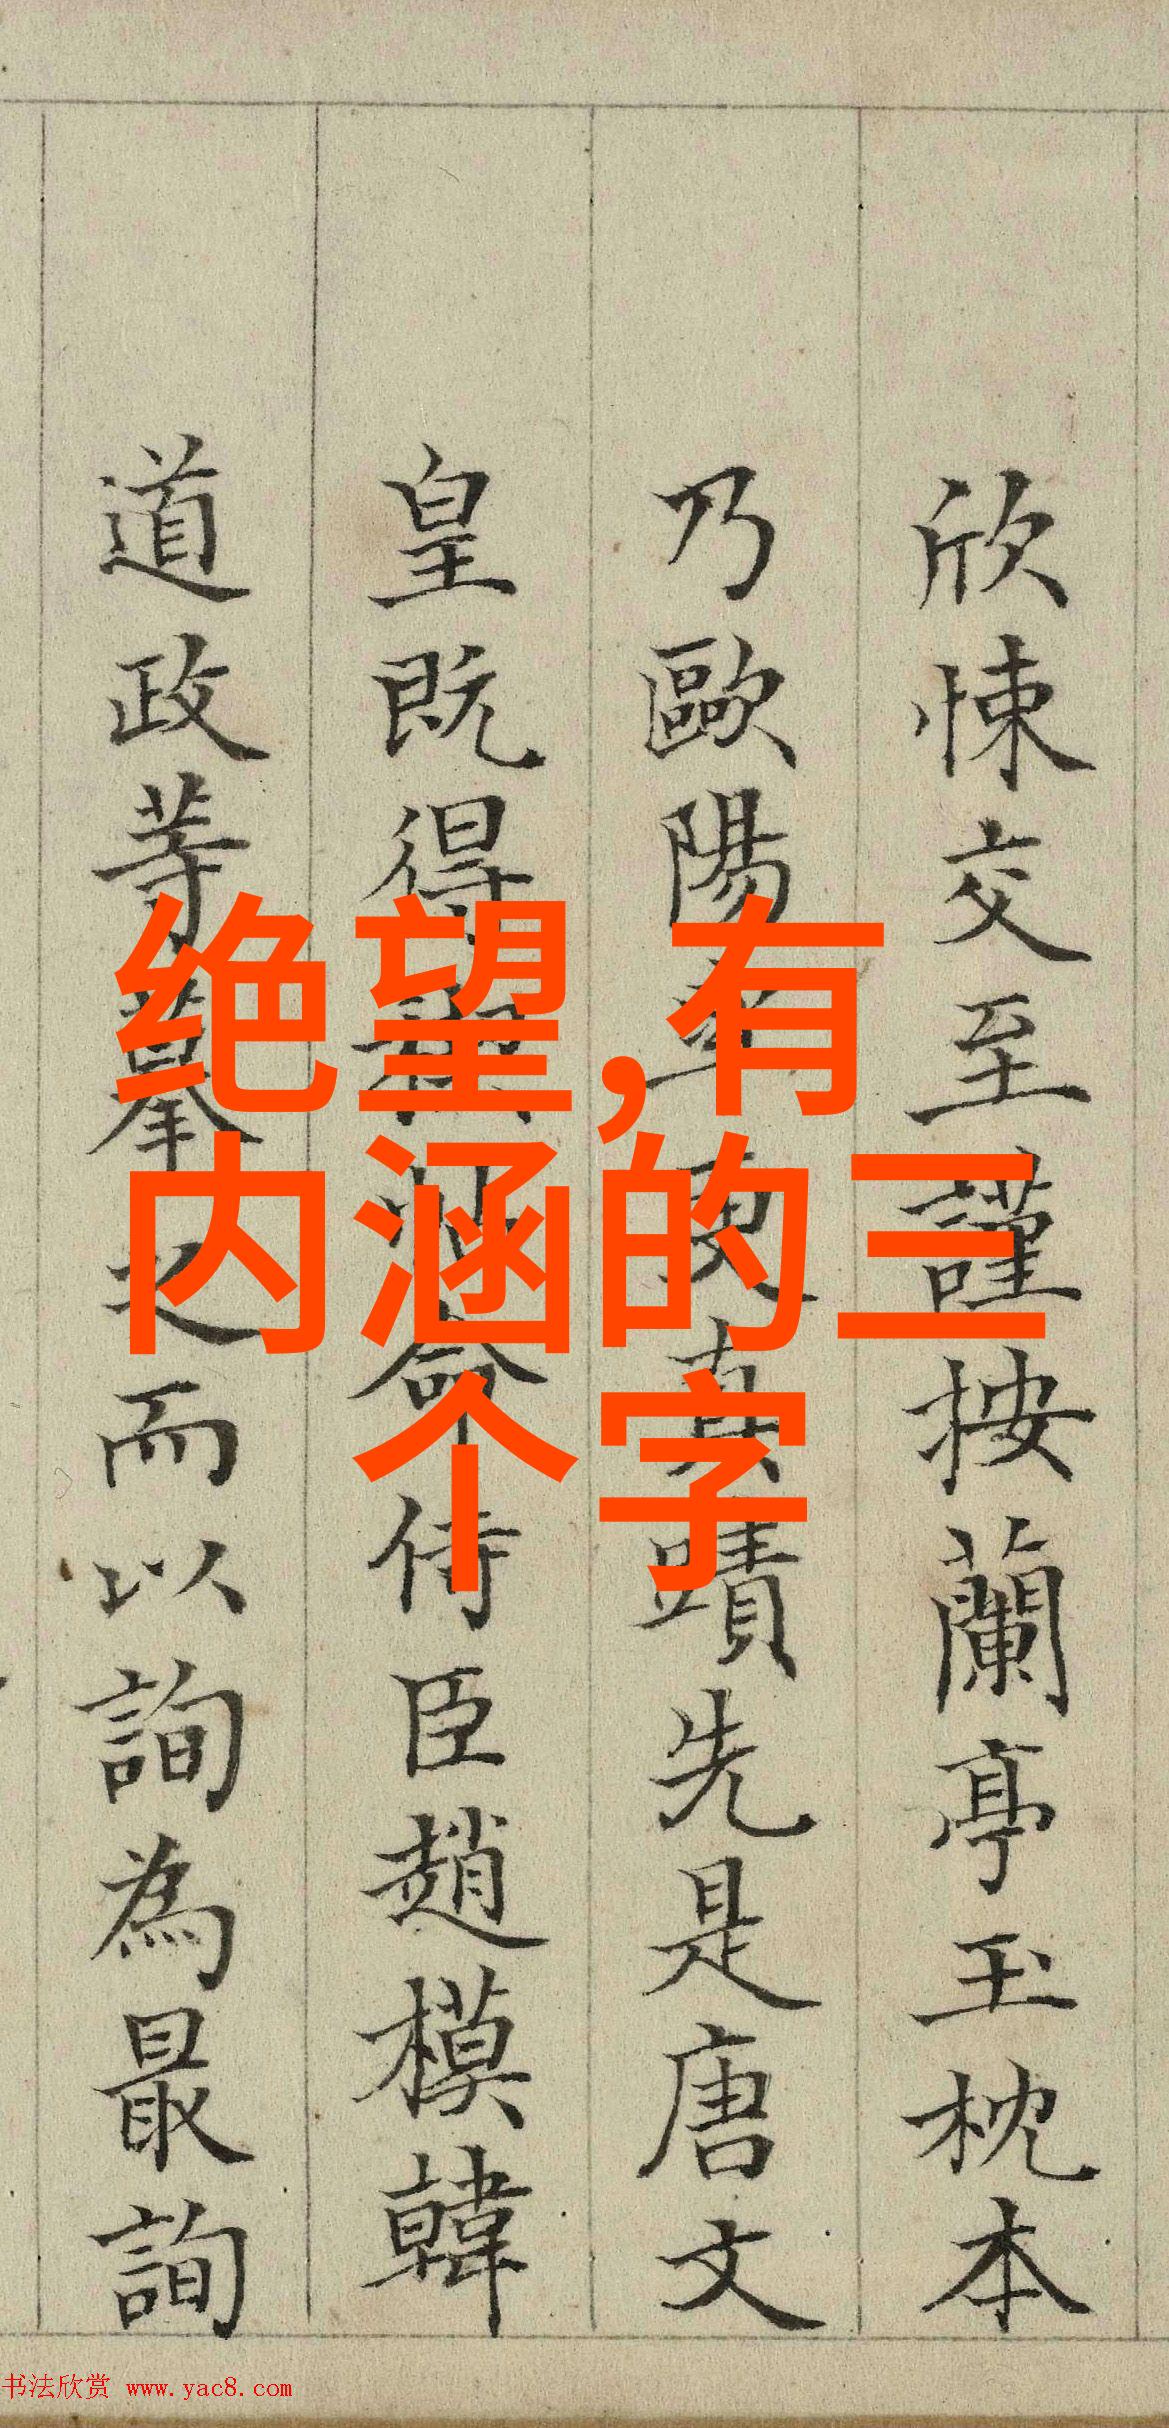 欣悚交至謹按蘭亭玉枕本
乃歐陽率更真蹟先是唐文
皇既得禊帖命侍臣趙模韓
道政等摹之而以詢為最詢
绝望,有
内涵的三
个字
书法欣赏 www.yac8.com